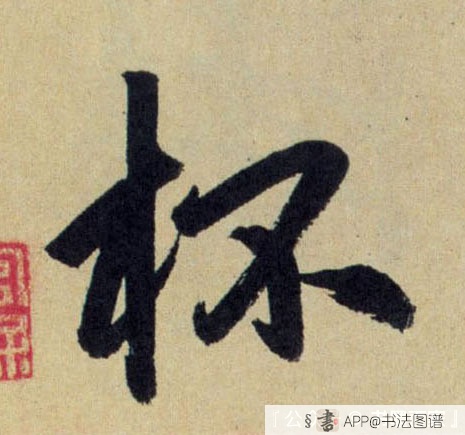 杯
§書 APP@书法图谱